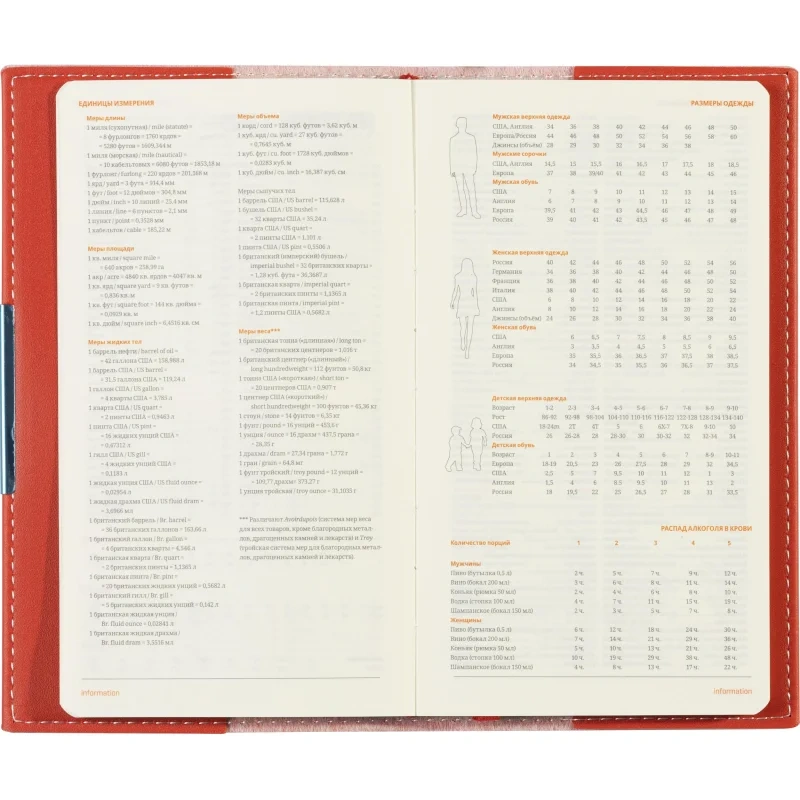 ЕДИНИЦЫ ИЗМЕРЕНИЯ
Меры длины
1 миля (сухопутная) / mile (statute) =
= 8 фурлонгов = 1760 ярдов =
= 5280 футов = 1609,344 м
1 миля (морская) / mile (nautical) =
= 10 кабельтовых = 6080 футов = 1853,18 м
1 фурлонг / furlong = 220 ярдов = 201,168 м
1 ярд / yard = 3 фута = 914,4 мм
1 фут / foot = 12 дюймов = 304,8 мм
1 дюйм / inch = 10 линий = 25,4 мм
1 линия / line = 6 пунктов = 2,1 мм
1 пункт / point = 0,3528 мм
1 кабельтов / cable = 185,22 м
Меры площади
1 кв. миля / square mile =
= 640 акров = 258,99 га
1 акр / acre = 4840 кв. ярдов = 4047 кв. м
1 кв. ярд / square yard = 9 кв. футов =
= 0,836 кв. м
1 кв. фут / square foot = 144 кв. дюйма =
= 0,0929 кв. м
1 кв. дюйм / square inch = 6,4516 кв. см
Меры жидких тел
1 баррель нефти / barrel of oil =
= 42 галлона США = 158,988 л
1 баррель США / US barrel =
= 31,5 галлона США = 119,24 л
1 галлон США / US gallon =
= 4 кварты США = 3,785 л
1 кварта США / US quart =
= 2 пинты США = 0,9463 л
1 пинта США / US pint =
= 16 жидких унций США =
= 0,47312 л
1 гилл США / US gill =
= 4 жидкие унции США =
= 0,1183 л
1 жидкая унция США / US fluid ounce =
= 0,02954 л
1 жидкая драхма США / US fluid dram =
= 3,6966 мл
1 британский баррель / Br. barrel =
= 36 британских галлонов = 163,66 л
1 британский галлон / Br. gallon =
= 4 британских кварты = 4,546 л
1 британская кварта / Br. quart =
= 2 британских пинты = 1,1365 л
1 британская пинта / Br. pint =
= 20 британских жидких унций = 0,5682 л
1 британский гилл / Br. gill =
= 5 британских жидких унций = 0,142 л
1 британская жидкая унция /
Br. fluid ounce = 0,02841 л
1 британская жидкая драхма /
Br. fluid dram = 3,5516 мл
Меры объема
1 корд / cord = 128 куб. футов = 3,62 куб. м
1 куб. ярд / cu. yard = 27 куб. футов =
= 0,7645 куб. м
1 куб. фут / cu. foot = 1728 куб. дюймов =
= 0,0283 куб. м
1 куб. дюйм / cu. inch = 16,387 куб. см
Меры сыпучих тел
1 баррель США / US barrel = 115,628 л
1 бушель США / US bushel =
= 32 кварты США = 35,24 л
1 кварта США / US quart =
= 2 пинты США = 1,101 л
1 пинта США / US pint = 0,5506 л
1 британский (имперский) бушель /
imperial bushel = 32 британских кварты =
= 1,28 куб. фута = 36,3687 л
1 британская кварта / imperial quart =
= 2 британских пинты = 1,1365 л
1 британская пинта / imperial pint =
= 1,2 пинты США = 0,5682 л
Меры веса***
1 британская тонна («длинная») / long ton =
= 20 британских центнеров = 1,016 т
1 британский центнер («длинный») /
long hundredweight = 112 фунтов = 50,8 кг
1 тонна США («короткая») / short ton =
= 20 центнеров США = 0,907 т
1 центнер США («короткий») /
short hundredweight = 100 фунтов = 45,36 кг
1 стоун / stone = 14 фунтов = 6,35 кг
1 фунт / pound = 16 унций = 453,6 г
1 унция / ounce = 16 драхм = 437,5 грана =
= 28,35 г
1 драхма / dram = 27,34 грана = 1,772 г
1 гран / grain = 64,8 мг
1 фунт тройский / troy pound = 12 унций =
= 100,77 драхм = 373,27 г
1 унция тройская / troy ounce = 31,1035 г
*** Различают Avoirdupois (система мер веса
для всех товаров, кроме благородных метал-
лов, драгоценных камней и лекарств) и Troy
(тройская система мер для благородных метал-
лов, драгоценных камней и лекарств).
information
РАЗМЕРЫ ОДЕЖДЫ
Мужская верхняя одежда
США, Англия 34 36 38 40 42 44 46 48 50
Европа/Россия 44 46 48 50 52 54 56 58 60
Джинсы (объём) 28 29 30 32 34 36 38
Мужские сорочки
США, Англия 14,5 15 15,5 16 16,5 17 17,5 18 18,5
Европа 37 38 39/40 41 42 43 44 45 46
Мужская обувь
США 7 8 9 10 11 12 13 14 15
Англия 6 7 8 9 10 11 12 13 14
Европа 39,5 41 42 43 44,5 46 47 48 49
Россия 39 40 41 42 43,5 45 46 47 48
Женская верхняя одежда
Россия 40 42 44 46 48 50 52 54 56
Германия 34 36 38 40 42 44 46 48 50
Франция 36 38 40 42 44 46 48 50 52
Италия 38 40 42 44 46 48 50 52 54
США 6 8 10 12 14 16 18 20 22
Англия 8 10 12 14 16 18 20 22 24
Джинсы (объём) 24 26 28 30 32 34 36 38 40
Женская обувь
США 6 6,5 7 7,5 8 8,5 9 9,5
Англия 3 3,5 4 4,5 5 5,5 6 6,5
Европа 35 35,5 36 36,5 37 37,5 38 38,5
Россия 34 34,5 35 35,5 36 36,5 37 37,5
Детская верхняя одежда
Возраст 1-2 2-3 3-4 4-5 5-6 6-7 7-8 8-9 9-10
Рост 86-92 92-98 98-104 104-110 110-116 116-122 122-128 128-134 134-140
США 18-24m 2T 4T 5 6 6X-7 7X-8 9-10 10
Россия 26 26-28 28 28-30 30 30-32 32 32-34 34
Детская обувь
Возраст 1 2 3 4 5 7 8-9 10-11
Европа 18-19 20,5 23 26 27,5 28 29 32 34,5
США 2,5 5 7 9,5 10 11 12 1 3
Англия 1,5 4 6 8,5 9,5 10 11 13 2
Россия 18 19,5 22 25 26,5 27 28 31 33,5
РАСПАД АЛКОГОЛЯ В КРОВИ
Количество порций 1 2 3 4 5
Мужчины
Пиво (бутылка 0,5 л) 2 ч. 5 ч. 7 ч. 9 ч. 12 ч.
Вино (бокал 200 мл) 3 ч. 6 ч. 8 ч. 11 ч. 14 ч.
Коньяк (рюмка 50 мл) 2 ч. 4 ч. 6 ч. 8 ч. 10 ч.
Водка (стопка 100 мл) 4 ч. 7 ч. 11 ч. 15 ч. 19 ч.
Шампанское (бокал 150 мл) 2 ч. 3 ч. 5 ч. 7 ч. 8 ч.
Женщины
Пиво (бутылка 0,5 л) 6 ч. 12 ч. 18 ч. 24 ч. 30 ч.
Вино (бокал 200 мл) 7 ч. 14 ч. 21 ч. 29 ч. 36 ч.
Коньяк (рюмка 50 мл) 5 ч. 10 ч. 13 ч. 21 ч. 26 ч.
Водка (стопка 100 мл) 10 ч. 19 ч. 29 ч. 38 ч. 48 ч.
Шампанское (бокал 150 мл) 4 ч. 8 ч. 13 ч. 17 ч. 22 ч.
information